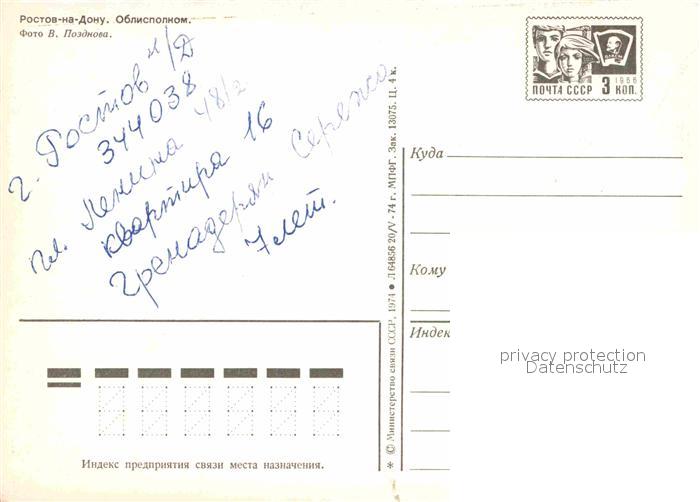 Ростов-на-Дону. Облисполком.
Фото В. Позднова.
г. Ростов н/Д
344038
пл. Ленина 48/2
квартира 16
Гренадерян Сережа
7 лет.
ПОЧТА СССР 3 КОП.
1966
Куда
Кому
Индек
privacy protection
Datenschutz
Индекс предприятия связи места назначения.
* © Министерство связи СССР, 1974 ● Л 64856 20/V-74 г. МПФГ. Зак. 13075. Ц. 4 к.